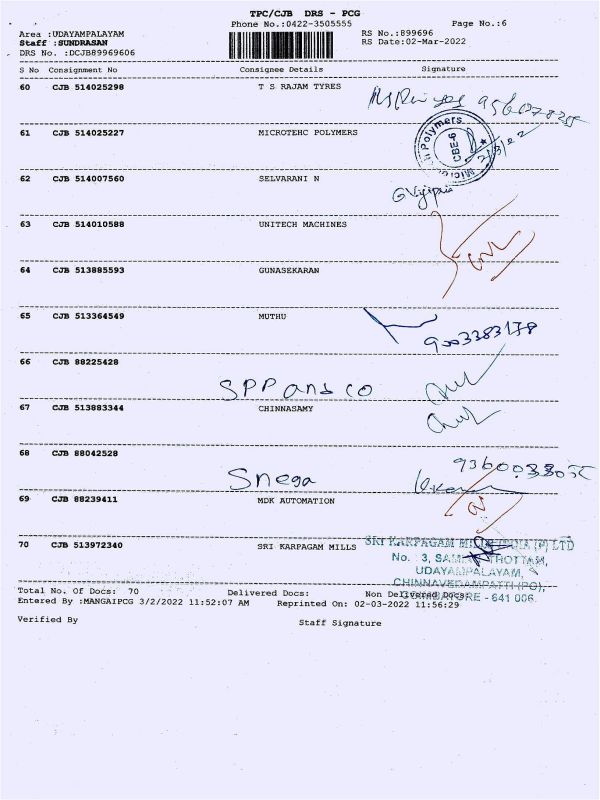 TPC/CJB DRS - PCG
Phone No.:0422-3505555 Page No.:6
Area :UDAYAMPALAYAM RS No.:899696
Staff :SUNDRASAN RS Date:02-Mar-2022
DRS No. :DCJB89969606
S No Consignment No Consignee Details Signature
60 CJB 514025298 T S RAJAM TYRES
61 CJB 514025227 MICROTEHC POLYMERS
Polymers
CBE-6
2/3/22
62 CJB 514007560 SELVARANI N
63 CJB 514010588 UNITECH MACHINES
64 CJB 513885593 GUNASEKARAN
65 CJB 513364549 MUTHU
9003383178
66 CJB 88225428
SPP and co
67 CJB 513883344 CHINNASAMY
68 CJB 88042528
Snega
69 CJB 88239411 MDK AUTOMATION
70 CJB 513972340 SRI KARPAGAM MILLS
SRI KARPAGAM MILLS (INDIA) (P) LTD
No. 3, THOTTAM,
UDAYAMPALAYAM,
CHINNAVEDAMPATTI (PO),
COIMBATORE - 641 006.
Total No. Of Docs: 70 Delivered Docs: Non Delivered Docs:
Entered By :MANGAIPCG 3/2/2022 11:52:07 AM Reprinted On: 02-03-2022 11:56:29
Verified By Staff Signature